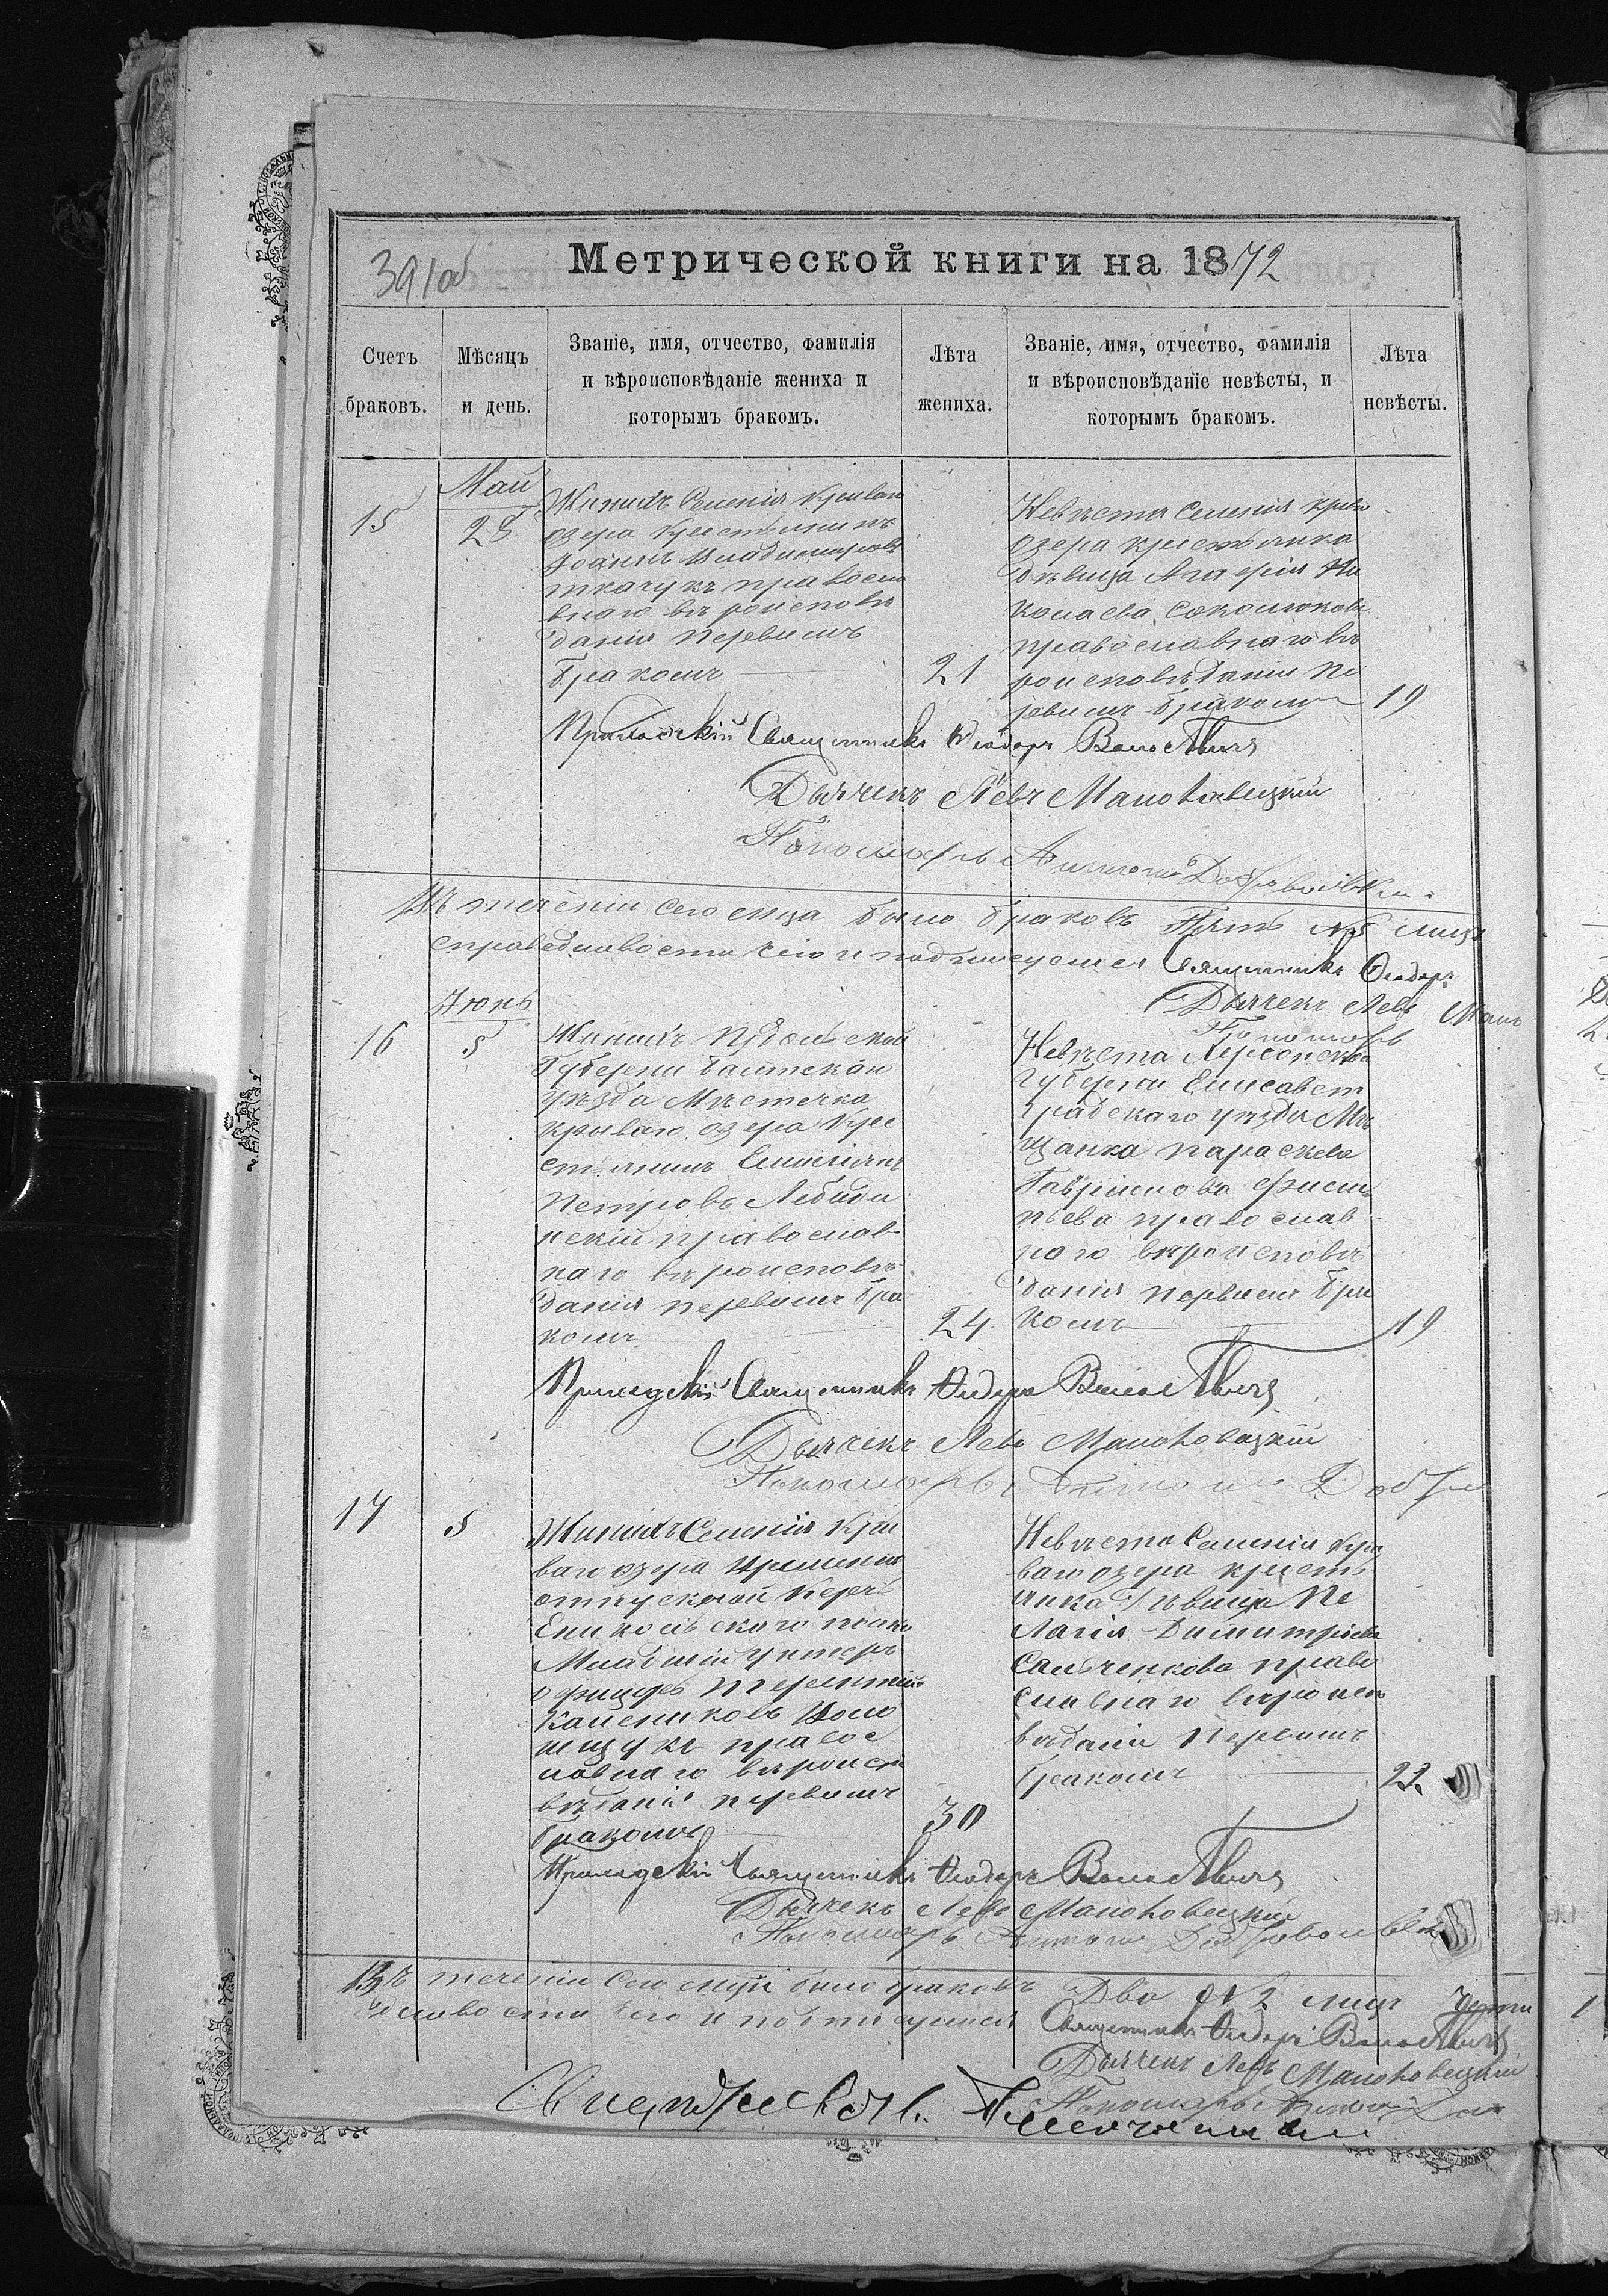 391об
Метрической книги на 1872
Счетъ
браковъ.
Мѣсяцъ
и день.
Званіе, имя, отчество, фамилія
и вѣроисповѣданіе жениха и
которымъ бракомъ.
Лѣта
жениха.
Званіе, имя, отчество, фамилія
и вѣроисповѣданіе невѣсты, и
которымъ бракомъ.
Лѣта
невѣсты.
15
Май
28
Женихъ Селенія Криваго
озера Крестьянинъ
Іоаннъ Владимировъ
ткачукъ правосла
внаго вѣроисповѣ
данія первымъ
бракомъ
21
Невѣста Селенія Криво
озера крестьянка
дѣвица Агафія Ни
колаева Соколюкова
православнаго вѣ
роисповѣданія пе
рвымъ бракомъ
19
Приходскій Священникъ Ѳеодоръ
Дьячекъ Левъ Маньковецкій
Пономарь Антоній Добровольскій
Въ течении сего мца было браковъ Пять №5 лицъ
справедливости чего и подписуемся Священникъ Ѳеодоръ
Дьячекъ Левъ Мань
Пономарь
Іюнь
16
5
Женихъ Подольской
Губерніи Балтскаго
уѣзда Мѣстечка
Криваго озера Кре
стьянинъ Емиліянъ
Петровъ Лебеди
нскій православ
наго вѣроисповѣ
данія первымъ бра
комъ
24
Невѣста Херсонской
Губерніи Елисавет
градскаго уѣзда Мѣ
щанка параскева
Гавриилова
православ
наго вѣроисповѣ
данія первымъ бра
комъ
19
Приходскій Священникъ Ѳеодоръ
Дьячекъ Левъ Маньковецкій
Пономарь Антоній Добро
17
5
Женихъ Селенія Кри
ваго озера временно
отпускной Керчь
Еникольского полка
Младшій унтеръ
офицеръ терентій
правос
лавнаго вѣроиспо
вѣданія первымъ
бракомъ
30
Невѣста Селенія Кри
ваго озера крестъ
янка дѣвица Пе
лагія Димитріева
Сальченкова право
славнаго вѣроиспо
вѣданія первымъ
бракомъ
22
Приходскій Священникъ Ѳеодоръ
Дьячекъ Левъ Маньковецкій
Пономарь Антоній Добровольскій
Въ течении сего мца было браковъ Два №2 лицъ
чего и подписуемся Священникъ Ѳеодоръ
Дьячекъ Левъ Маньковецкій
Пономарь Антоній